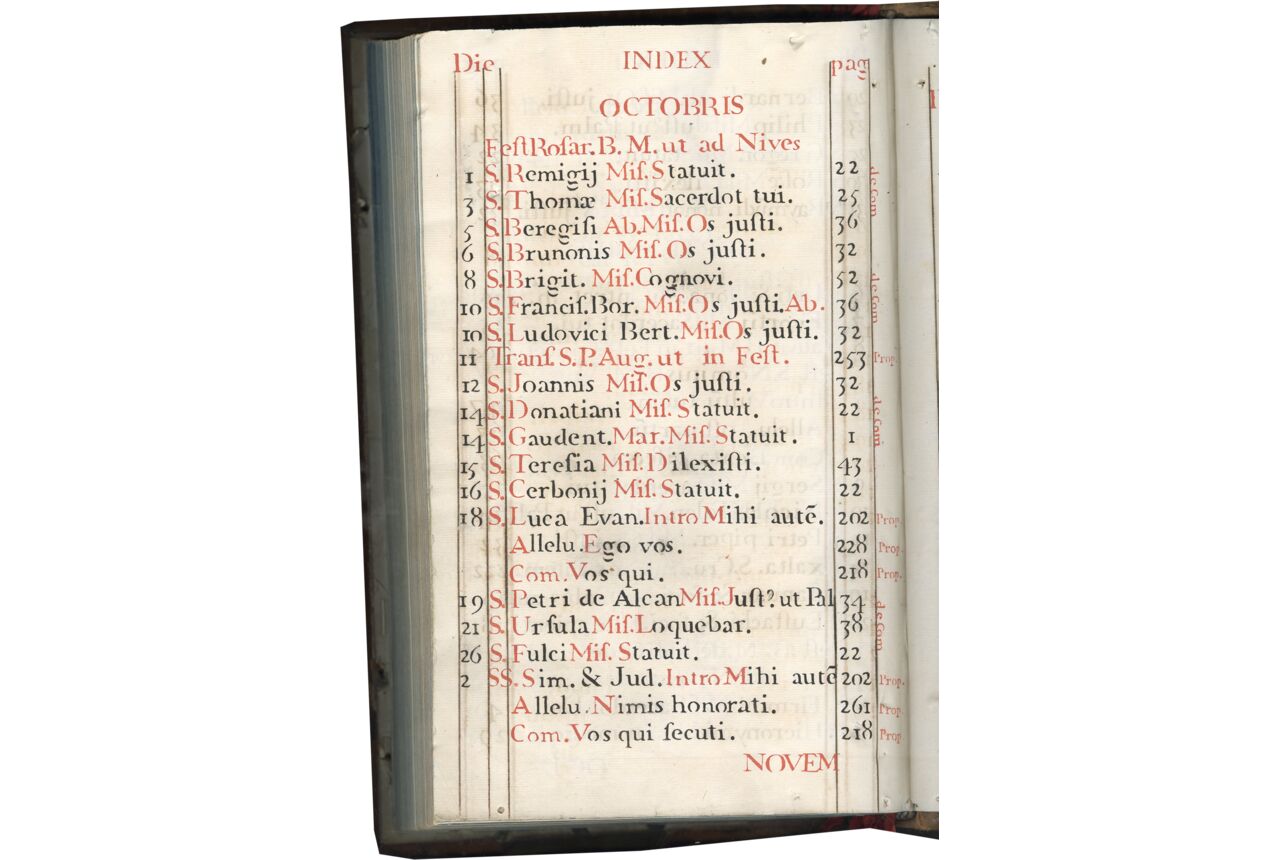 Die INDEX pag
OCTOBRIS
Feſt Roſar. B. M. ut ad Nives
1 S. Remigij Miſ. Statuit. 22
de Com
3 S. Thomæ Miſ. Sacerdot tui. 25
5 S. Beregiſi Ab. Miſ. Os juſti. 36
6 S. Brunonis Miſ. Os juſti. 32
8 S. Brigit. Miſ. Cognovi. 52
de Com
10 S. Franciſ. Bor. Miſ. Os juſti. Ab. 36
10 S. Ludovici Bert. Miſ. Os juſti. 32
11 Tranſ. S. P. Aug. ut in Feſt. 253 Prop.
12 S. Joannis Miſ. Os juſti. 32
14 S. Donatiani Miſ. Statuit. 22
de Com
14 S. Gaudent. Mar. Miſ. Statuit. 1
15 S. Tereſia Miſ. Dilexiſti. 43
16 S. Cerbonij Miſ. Statuit. 22
18 S. Luca Evan. Intro Mihi autē. 202 Prop.
Allelu. Ego vos. 228 Prop.
Com. Vos qui. 218 Prop.
19 S. Petri de Alcan Miſ. Juſt? ut Pal 34
de Com
21 S. Urſula Miſ. Loquebar. 38
26 S. Fulci Miſ. Statuit. 22
2 SS. Sim. & Jud. Intro Mihi autē 202 Prop.
Allelu. Nimis honorati. 261 Prop.
Com. Vos qui ſecuti. 218 Prop
NOVEM